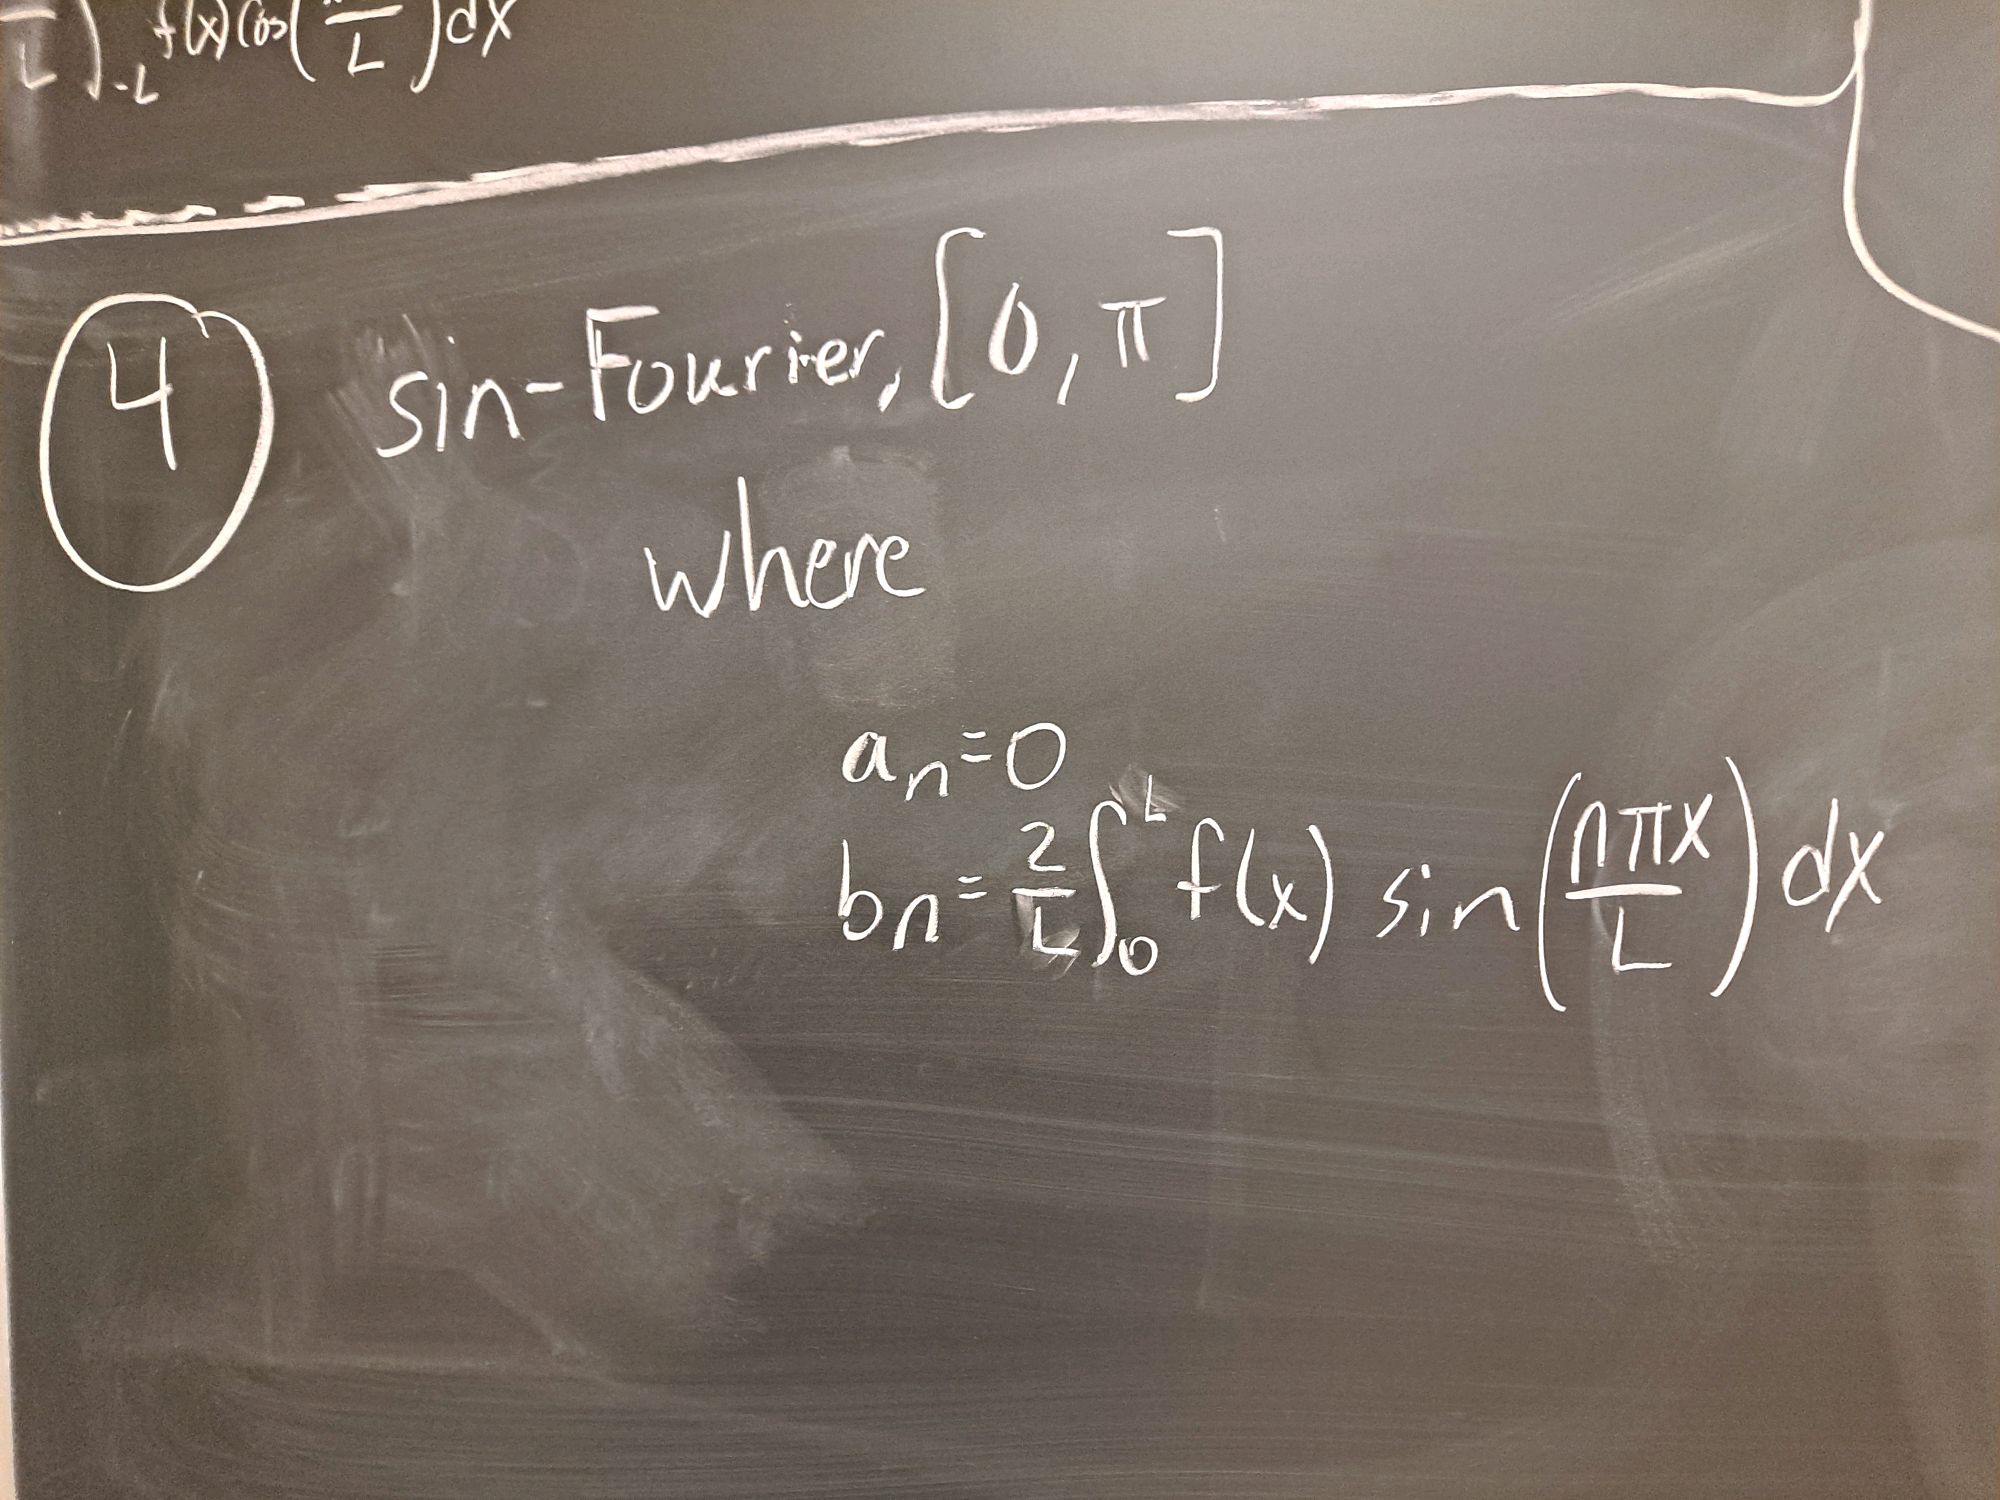 L ∫-L f(x) cos( /L) dx
4 sin-Fourier, [0, π]
where
an=0
bn= 2/L ∫0^L f(x) sin(nπx/L) dx